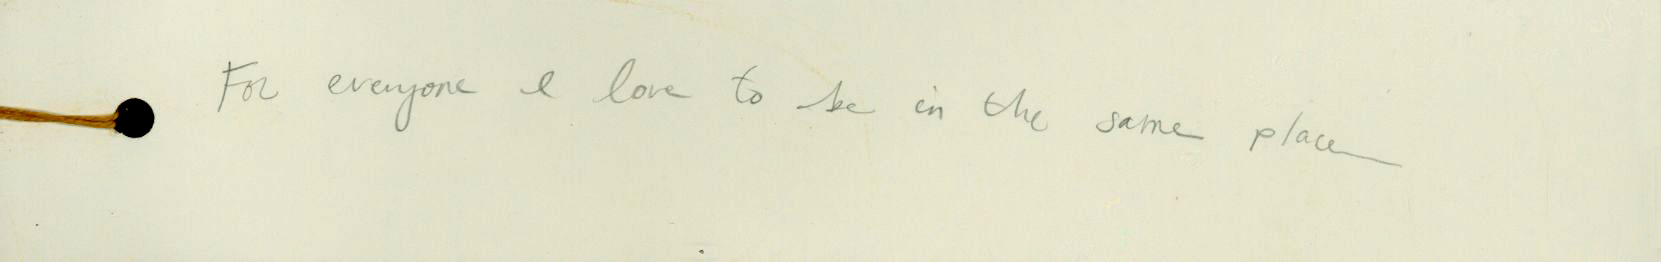 For everyone I love to be in the same place